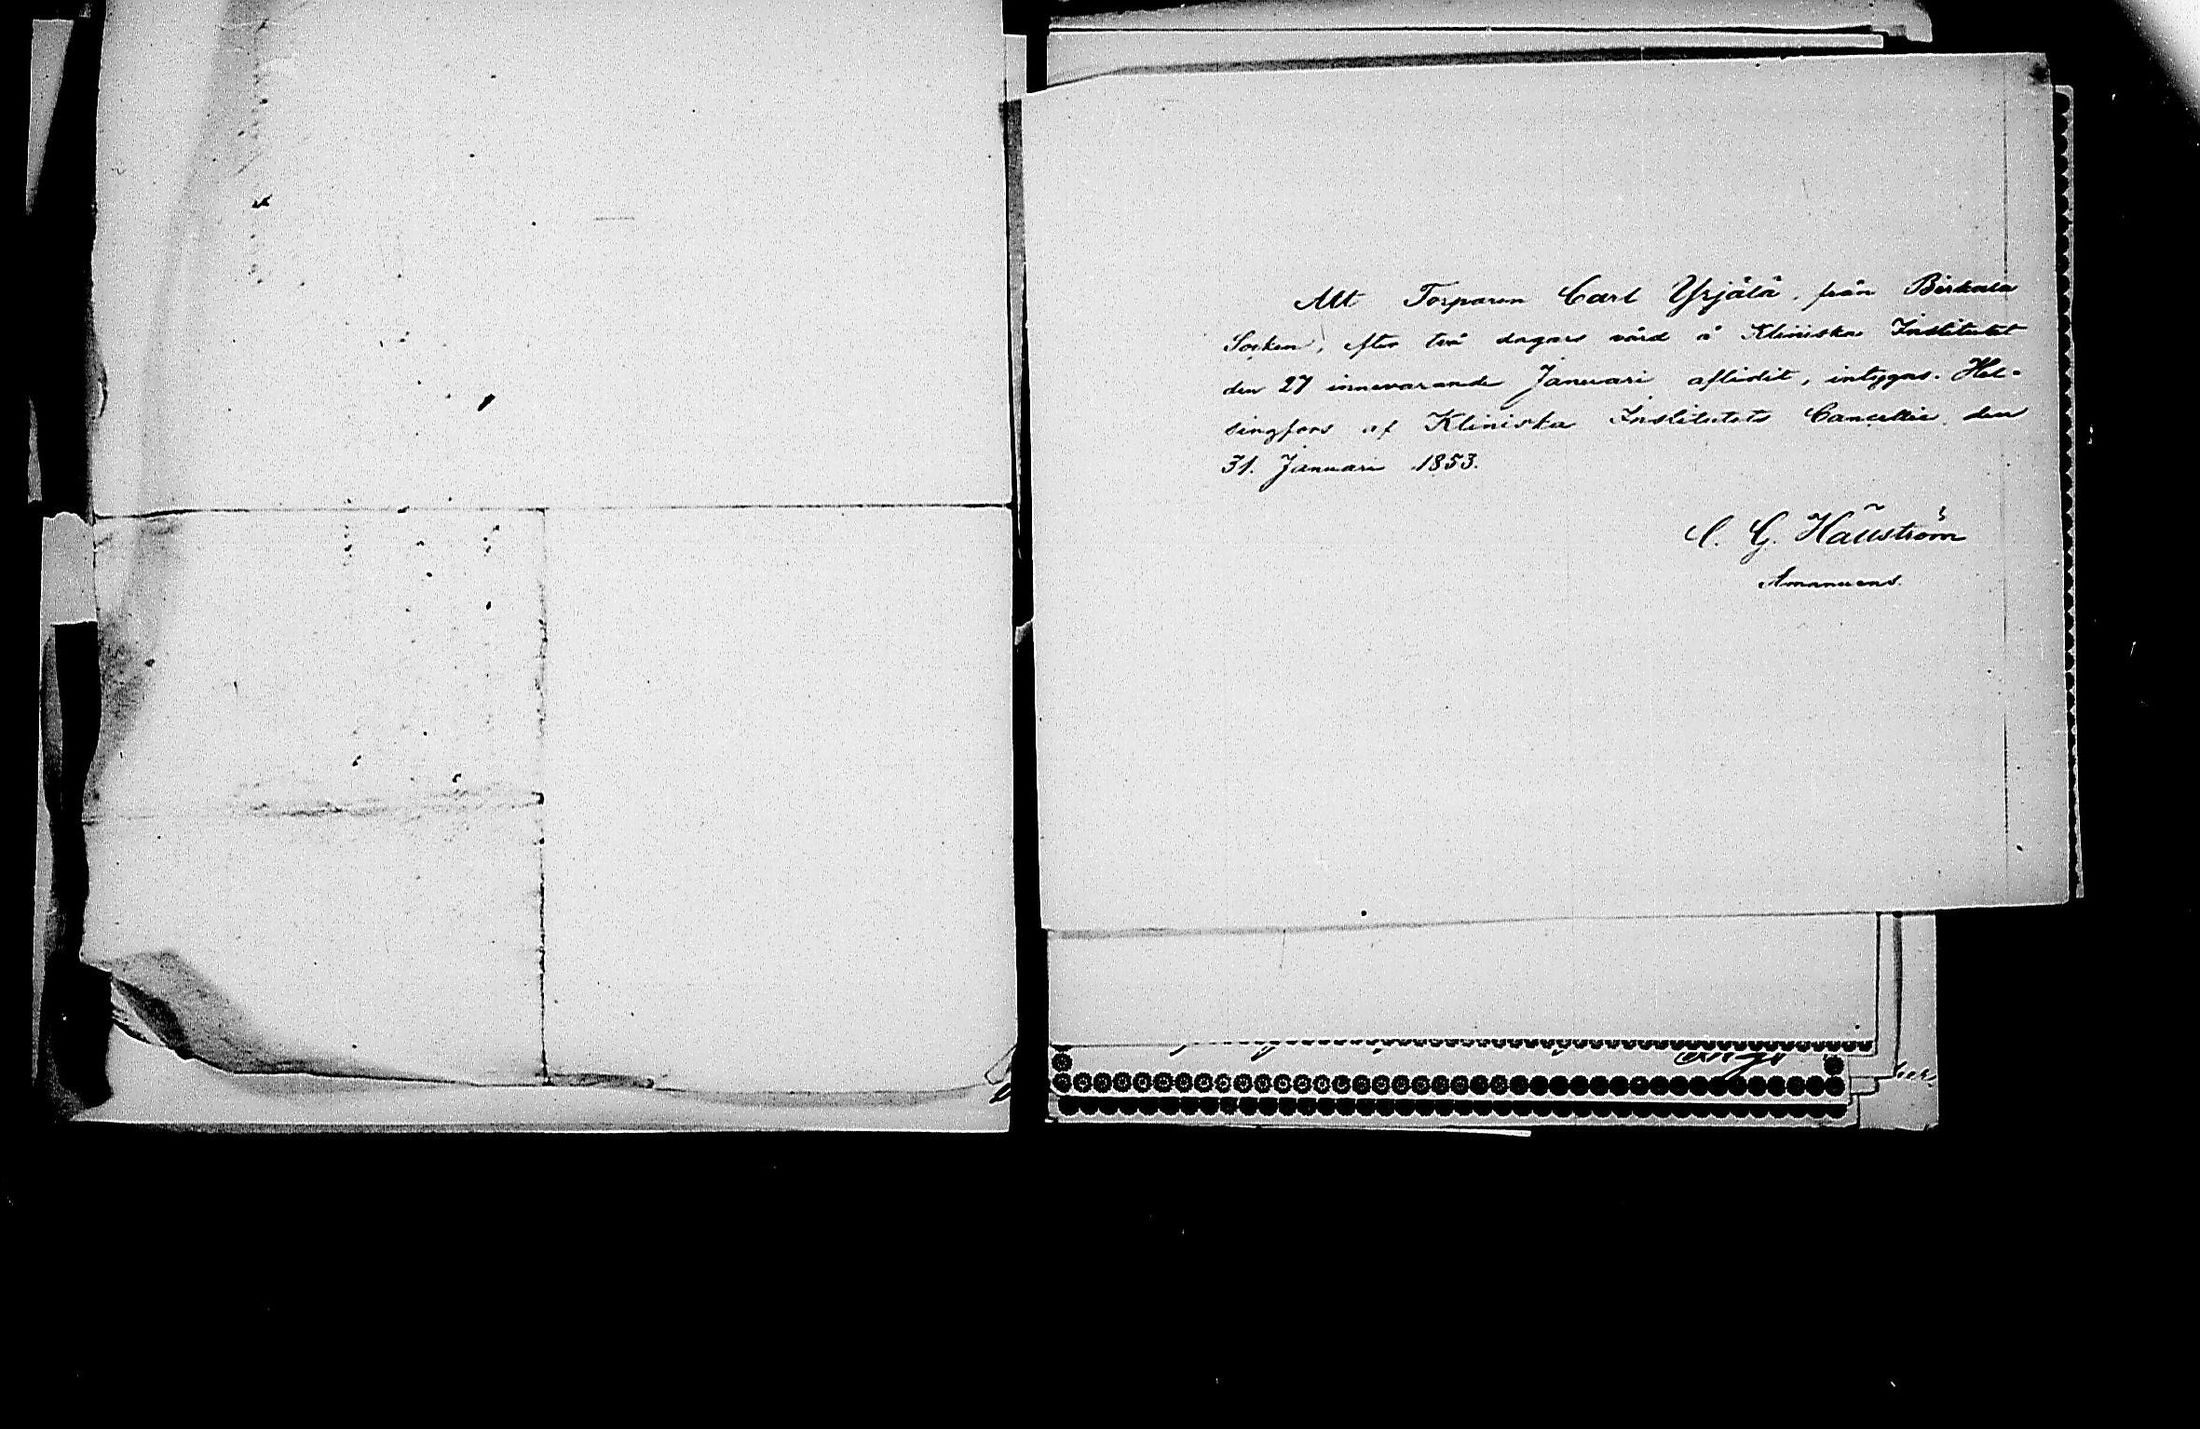 Att Torparen Carl Yrjälä, från Birkala
Socken, efter två dagars vård å Kliniska Institutet
den 27 innevarande Januari aflidit, intygas. Hel-
singfors af Kliniska Institutets Cancellie den
31. Januari 1853.
C. G. Hällström
Amanuens.